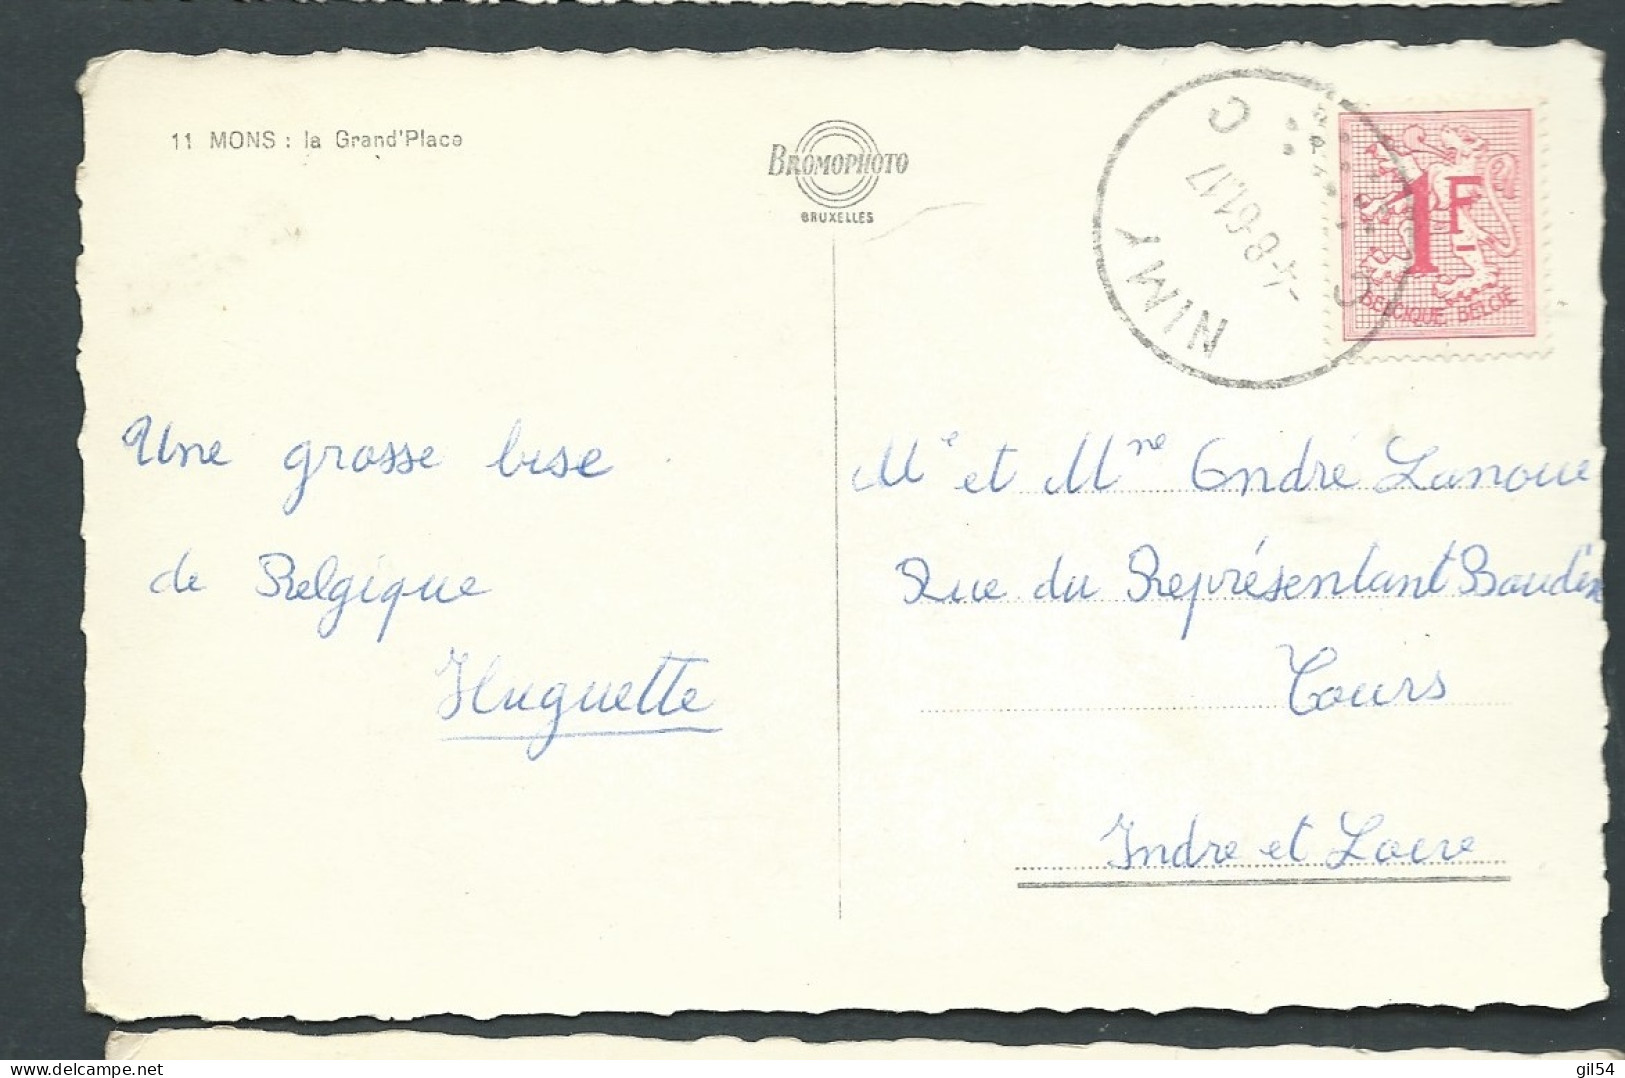 11 MONS : la Grand'Place
BROMOPHOTO
BRUXELLES
NIMY
-4-8-61.17
C C
1F
BELGIQUE BELGIE
Une grosse bise
de Belgique
Huguette
Me et Mme André Lanoue
Rue du Représentant Baudin
Tours
Indre et Loire
gil54